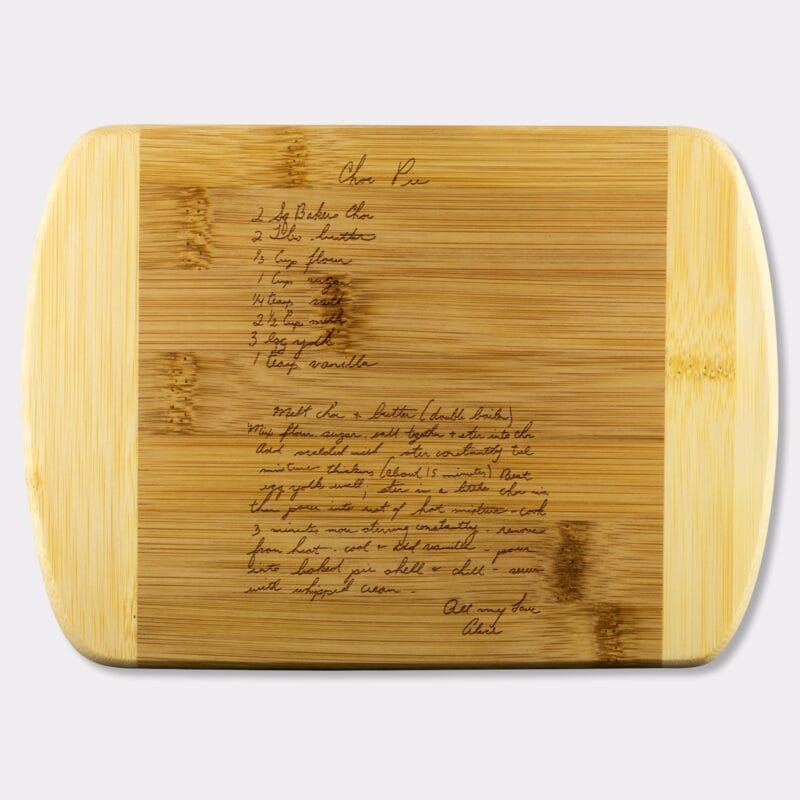 Choc Pie
2 Sq Bakers Choc
2 Tbs. butter
1/3 Cup flour
1 Cup sugar
1/4 teasp salt
2 1/2 Cup milk
3 Egg yolk
1 teasp vanilla
Melt choc + butter (double boiler)
Mix flour, sugar, salt together + stir into choc
Add scalded milk stir constantly till
mixture thickens (about 15 minutes) Beat
egg yolks well; stir in a little choc mix
then pour into rest of hot mixture - cook
3 minutes more stirring constantly - remove
from heat - cool + add vanilla - pour
into baked pie shell + chill - serve
with whipped cream -
All my Love
Alice